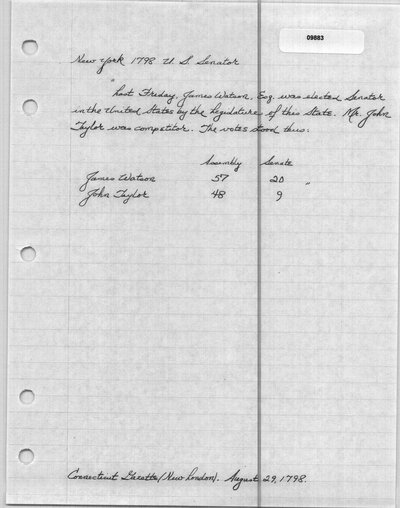 09883
New York 1798 U. S. Senator
"Last Friday, James Watson, Esq. was elected Senator
in the United States by the Legislature of this State. Mr. John
Taylor was competitor. The votes stood thus:
Assembly Senate
James Watson 57 20 "
John Taylor 48 9
Connecticut Gazette (New London). August 29, 1798.